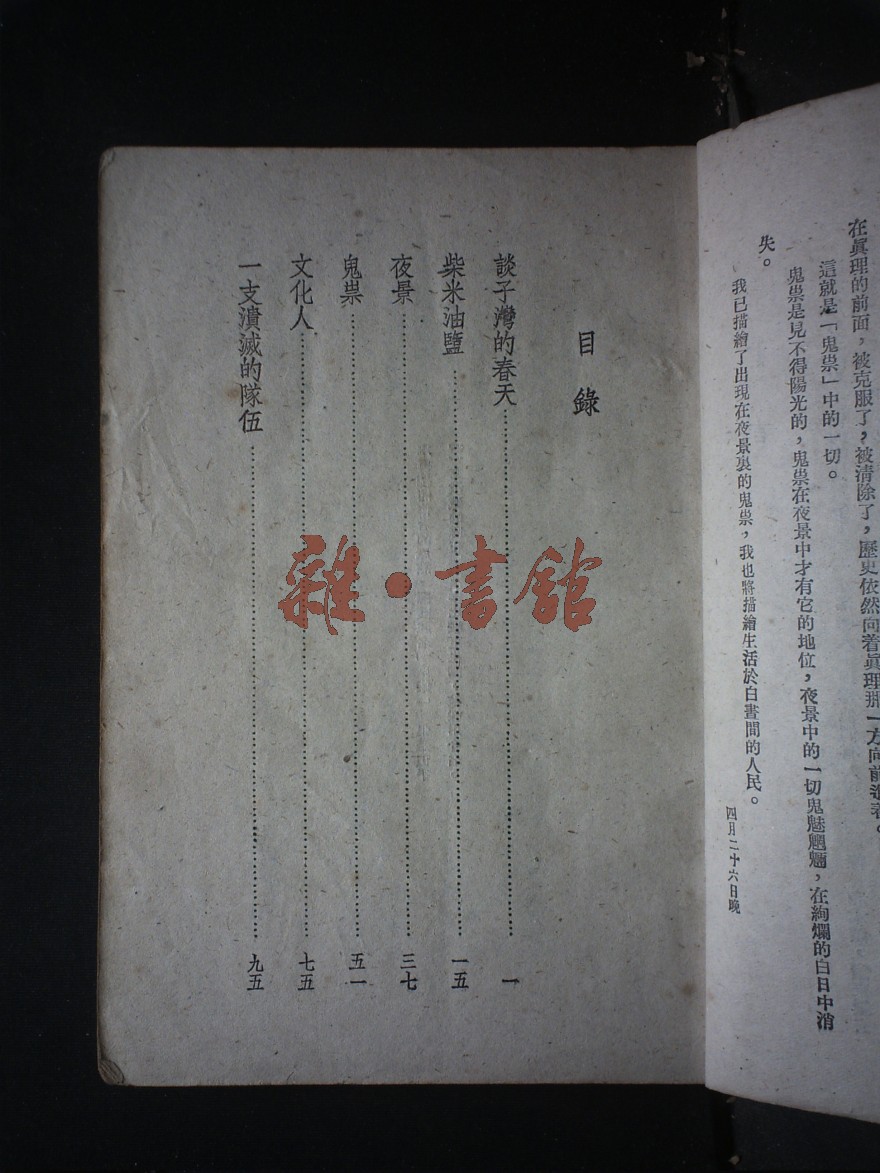 在眞理的前面，被克服了，被清除了，歷史依然向着眞理那一方向前進着。
這就是「鬼祟」中的一切。
鬼祟是見不得陽光的，鬼祟在夜景中才有它的地位，夜景中的一切鬼魅魍魎，在絢爛的白日中消
失。
我已描繪了出現在夜景裏的鬼祟，我也將描繪生活於白晝間的人民。
四月二十六日晚
目錄
談子灣的春天 一
柴米油鹽 一五
夜景 三七
鬼祟 五一
文化人 七五
一支潰滅的隊伍 九五
雜·書館